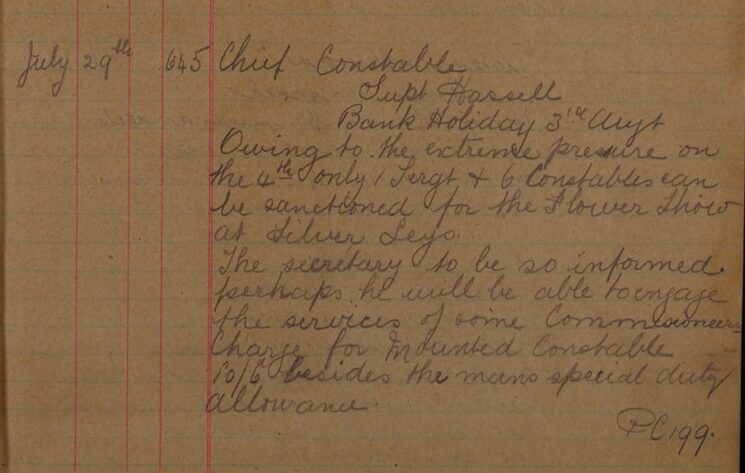 July 29th 645 Chief Constable
Supt Hassell
Bank Holiday 3rd Augt
Owing to the extreme pressure on
the 4th only 1 Sergt & 6 Constables can
be sanctioned for the Flower Show
at Silver Leys.
The secretary to be so informed.
perhaps he will be able to engage
the services of some Commisioneers
Charge for Mounted Constable
10/6d besides the mans special duty
allowance.
PC 199.